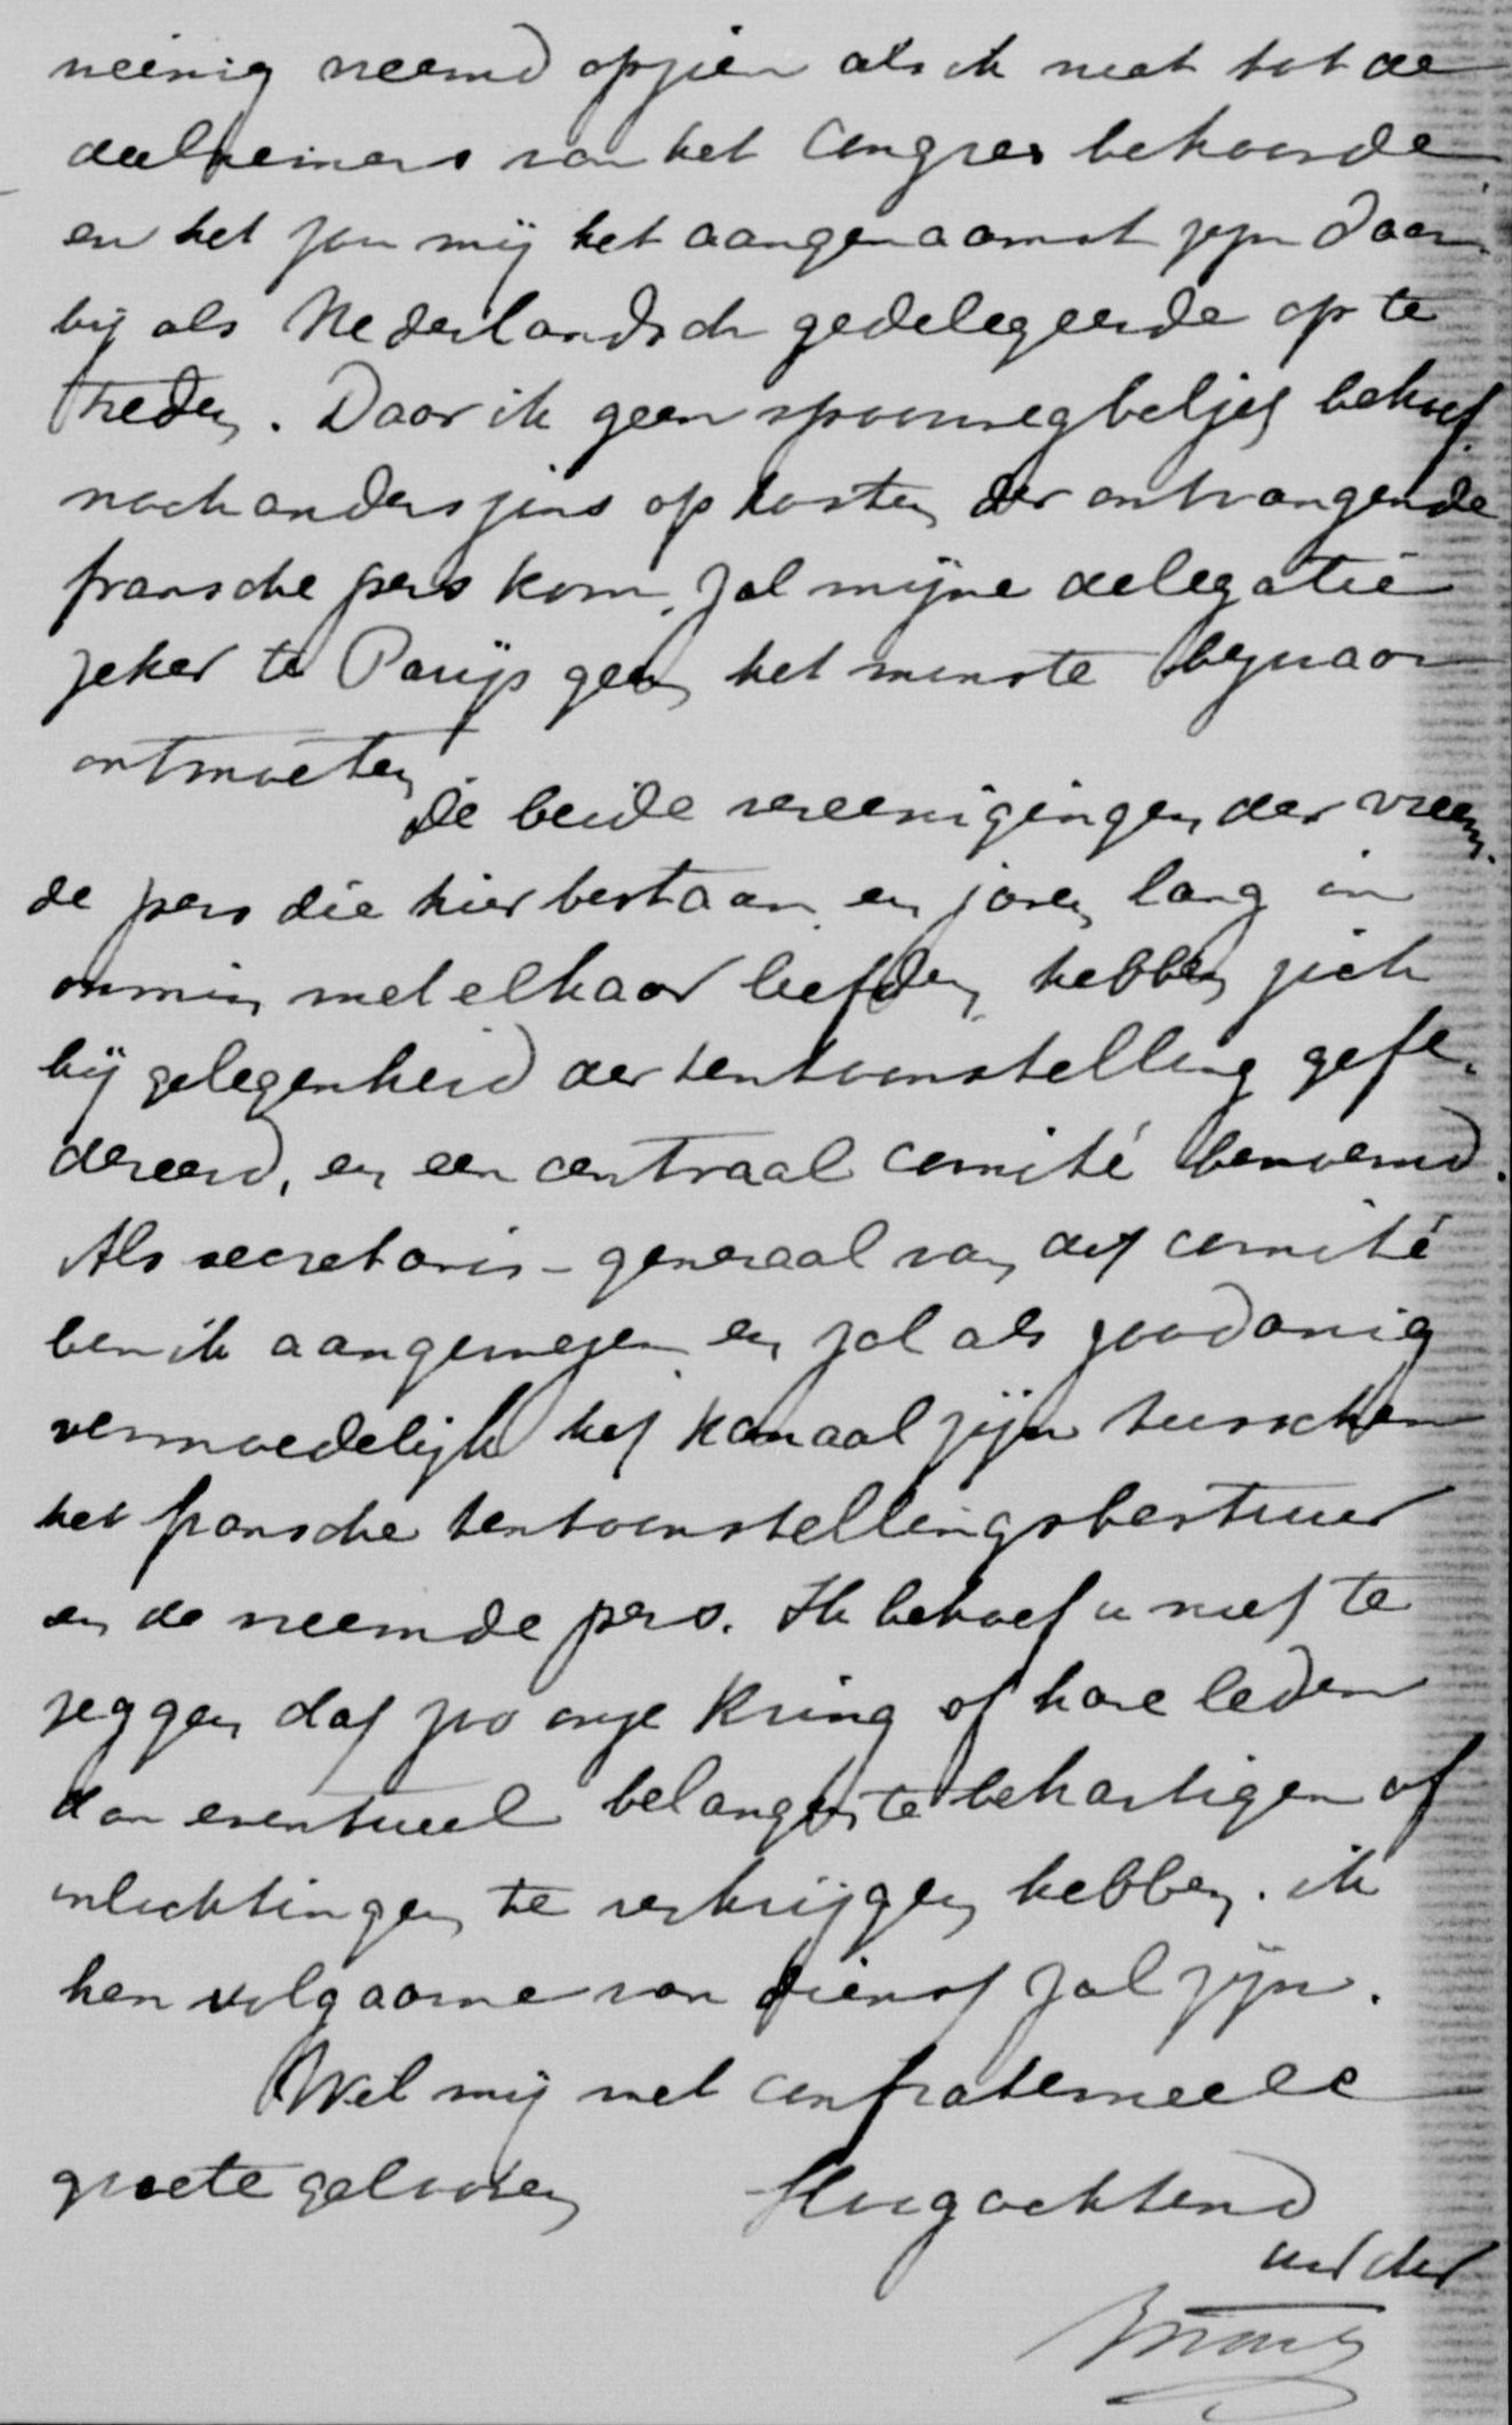 weinig vreemd opzien als ik niet tot de
deelnemers van het Congres behoorde
en het zou mij het aangenaamst zijn daar-
bij als Nederlandsch gedelegeerde op te
treden. Daar ik geen spoorwegbeljet behoef
noch anderszins op kosten der ontvangende
fransche pers kom, zal mijne delegatie
zeker te Parijs geen het minste bezwaar
ontmoeten.
De beide vereenigingen der vreem-
de pers die hier bestaan en jaren lang in
onmin met elkaar leefden, hebben zich
bij gelegenheid der tentoonstelling gefe-
dereerd, en een centraal comité benoemd.
Als secretaris-generaal van dit comité
ben ik aangewezen en zal als zoodanig
vermoedelijk het kanaal zijn tusschen
het fransche tentoonstellingsbestuur
en de vreemde pers. Ik behoef u niet te
zeggen dat zoo onze Kring of hare leden
dan eventueel belangen te behartigen of
inlichtingen te verkrijgen hebben, ik
hen volgaarne van dienst zal zijn.
Wil mij met confraterneele
groete gelooven Hoogachtend